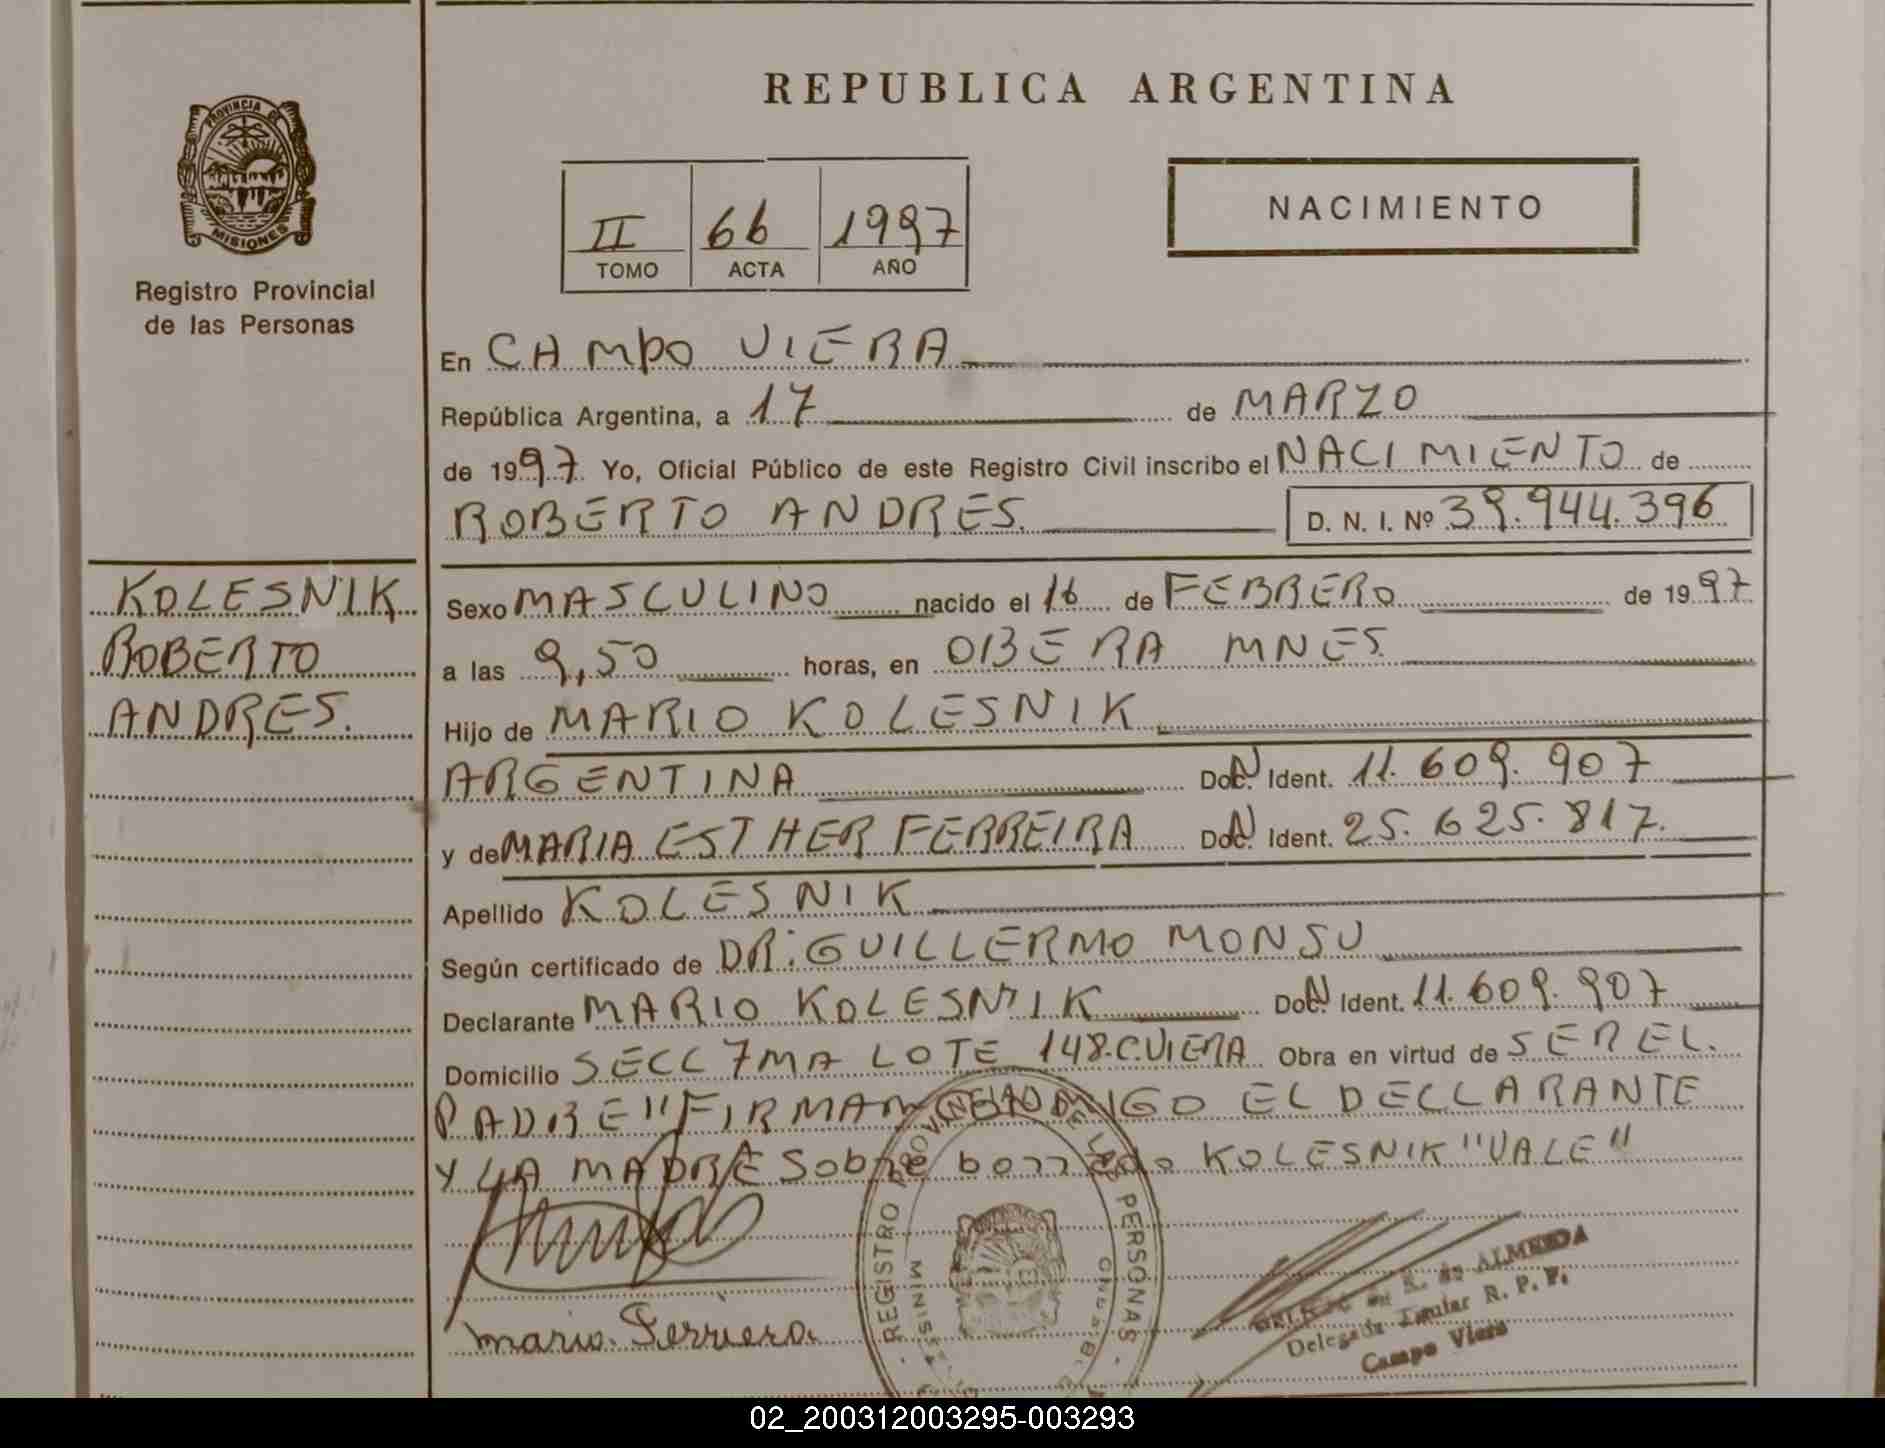 REPUBLICA ARGENTINA
PROVINCIA DE
MISIONES
Registro Provincial
de las Personas
II 66 1997
TOMO ACTA AÑO
NACIMIENTO
En CAMPO VIERA
República Argentina, a 17 de MARZO
de 1997. Yo, Oficial Público de este Registro Civil inscribo el NACIMIENTO de
ROBERTO ANDRES. D. N. I. Nº 39.944.396
KOLESNIK
ROBERTO
ANDRES.
Sexo MASCULINO nacido el 16 de FEBRERO de 1997
a las 9,50 horas, en OBERA MNES.
Hijo de MARIO KOLESNIK
ARGENTINA Doc. Ident. 11.609.907
y de MARIA ESTHER FERREIRA Doc. Ident. 25.625.817.
Apellido KOLESNIK
Según certificado de DR: GUILLERMO MONSU
Declarante MARIO KOLESNIK Doc. Ident. 11.609.907
Domicilio SECC 7MA LOTE 148.C.VIERA Obra en virtud de SER EL.
PADRE" FIRMAN CONMIGO EL DECLARANTE
Y LA MADRE Sobre borrado KOLESNIK "VALE"
REGISTRO PROVINCIAL DE LAS PERSONAS
de ALMEIDA
Delegada Titular R. P. P.
Campo Viera
02_200312003295-003293